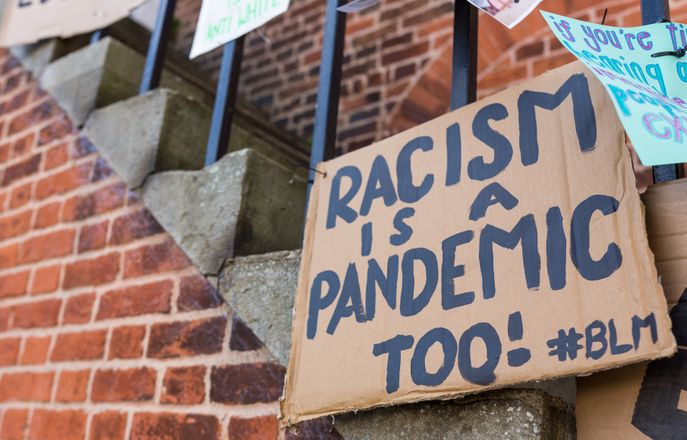 IS
ANTI WHITE
if you're ti
hearing a
RACISM
IS A
PANDEMIC
TOO! #BLM